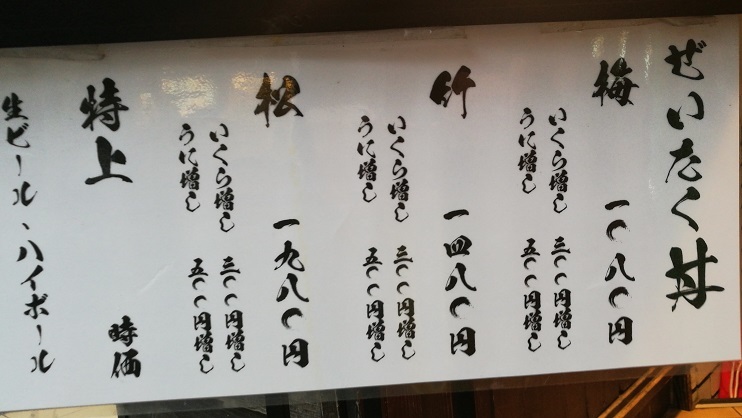 ぜいたく丼
梅 一〇八〇円
いくら増し 三〇〇円増し
うに増し 五〇〇円増し
竹 一四八〇円
いくら増し 三〇〇円増し
うに増し 五〇〇円増し
松 一九八〇円
いくら増し 三〇〇円増し
うに増し 五〇〇円増し
特上 時価
生ビール、ハイボール